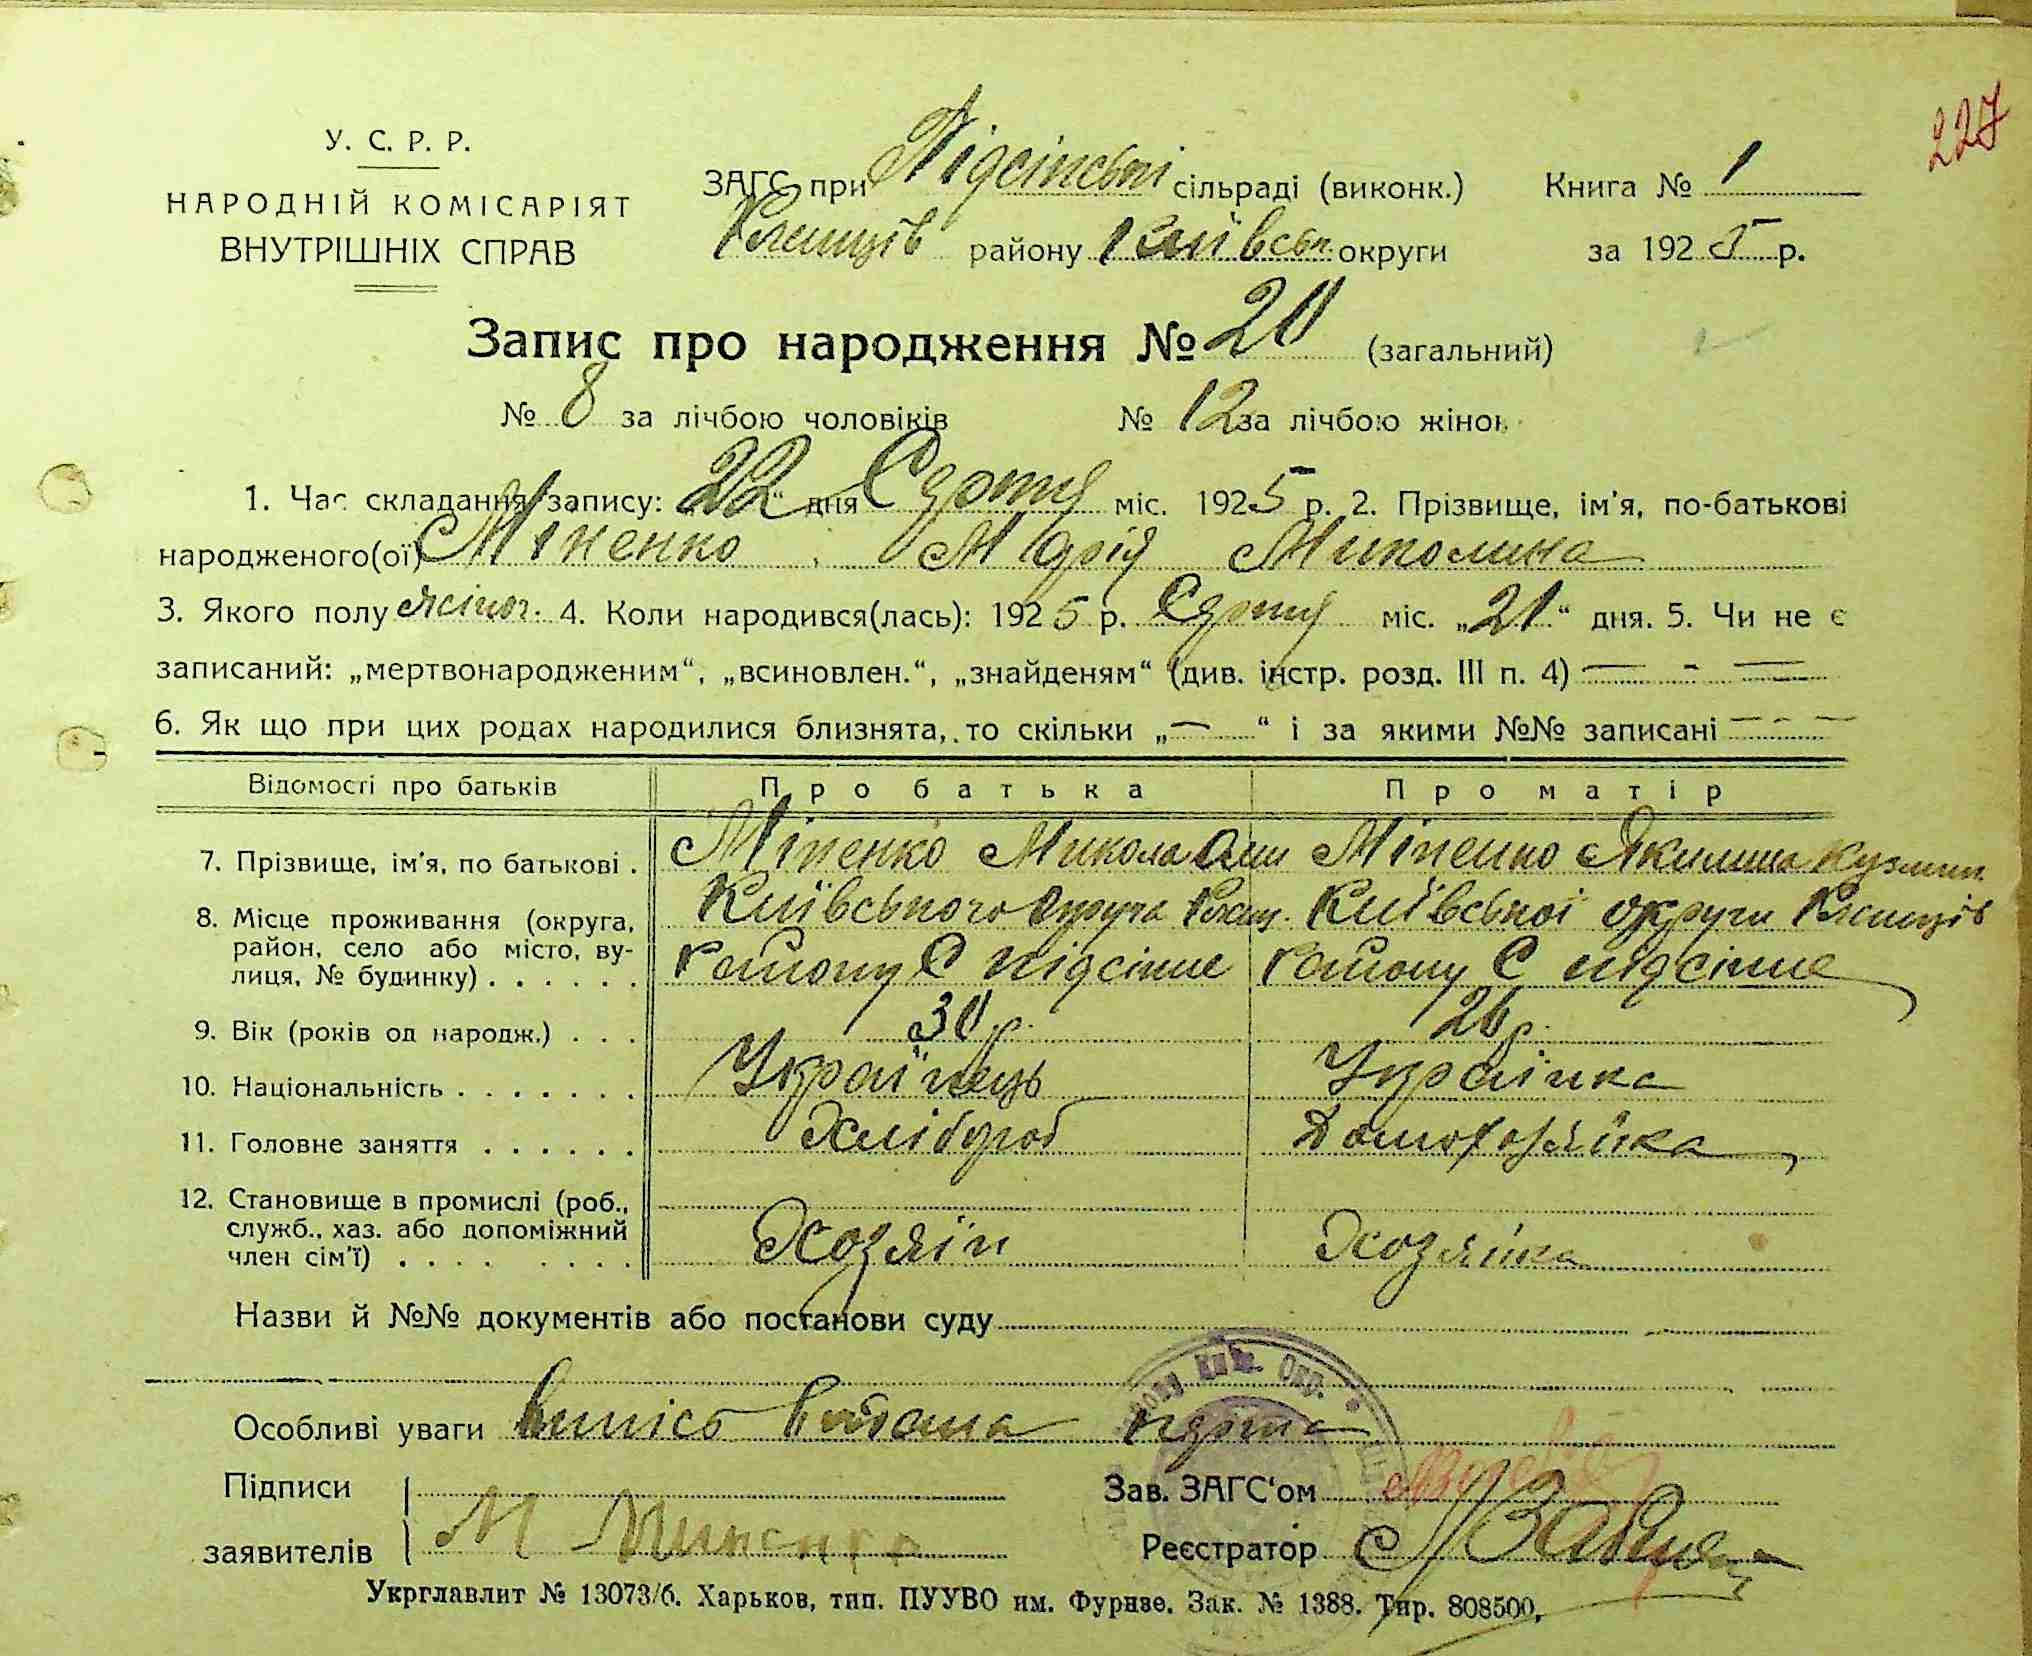 227
У. С. Р. Р.
НАРОДНІЙ КОМІСАРІЯТ
ВНУТРІШНІХ СПРАВ
ЗАГС при Підсінській сільраді (виконк.) Книга № 1
району Київськ. округи за 1925 р.
Запис про народження № 20 (загальний)
№ 8 за лічбою чоловіків № 12 за лічбою жінок
1. Час складання запису: „22“ дня Серпня міс. 1925 р. 2. Прізвище, ім'я, по-батькові
народженого(ої) Міненко Марія Миколина
3. Якого полу жіноч. 4. Коли народився(лась): 1925 р. Серпня міс. „21“ дня. 5. Чи не є
записаний: „мертвонародженим“, „всиновлен.“, „знайденям“ (див. інстр. розд. III п. 4) — - —
6. Як що при цих родах народилися близнята, то скільки „—“ і за якими №№ записані — - —
Відомості про батьків Про батька Про матір
7. Прізвище, ім'я, по батькові . Міненко Микола Міненко Якилина Кузмин.
8. Місце проживання (округа, Київського Київської округи
район, село або місто, ву- Району С Підсінне Району С Підсінне
лиця, № будинку) . . . . . .
9. Вік (років од народж.) . . . 30 р. 26 р.
10. Національність . . . . . . . Українець Українка
11. Головне заняття . . . . . . Хлібороб Домохозяйка
12. Становище в промислі (роб.,
служб., хаз. або допоміжний Хозяїн Хозяйка
член сім'ї) . . . . . . . .
Назви й №№ документів або постанови суду
Особливі уваги випісь
Підписи Зав. ЗАГС'ом
заявителів М Миненко Реєстратор
Укрглавлит № 13073/б. Харьков, тип. ПУУВО им. Фурнзе. Зак. № 1388. Тир. 808500.